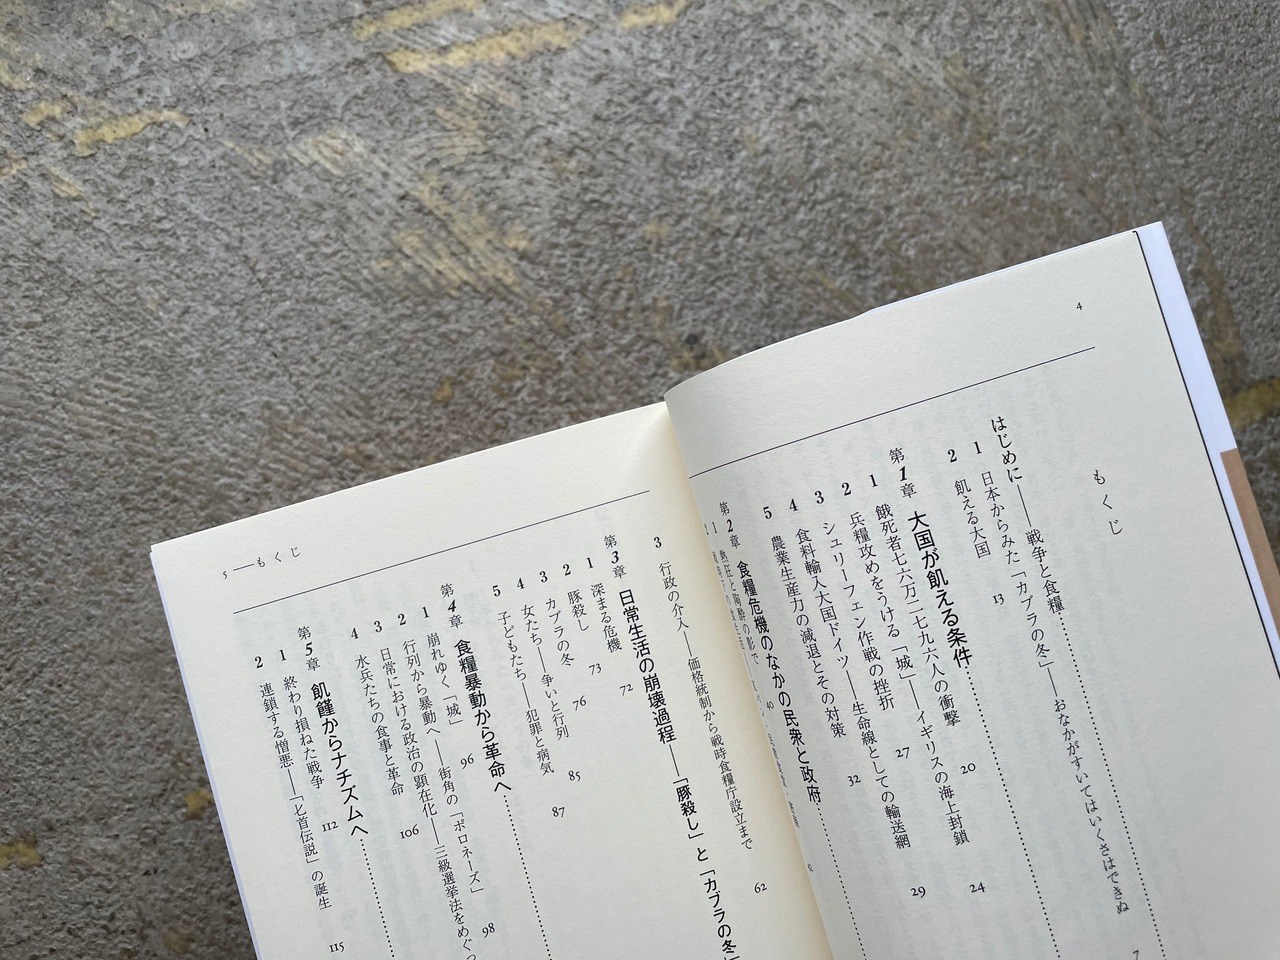 4
もくじ
はじめに――戦争と食糧
1 日本からみた「カブラの冬」――おなかがすいてはいくさはできぬ 7
2 飢える大国 13
第1章 大国が飢える条件
1 餓死者七六万二七九六人の衝撃 20
2 兵糧攻めをうける「城」――イギリスの海上封鎖 24
3 シュリーフェン作戦の挫折 27
4 食料輸入大国ドイツ――生命線としての輸送網 29
5 農業生産力の減退とその対策 32
第2章 食糧危機のなかの民衆と政府
1 熱狂と陶酔の影で 40
3 行政の介入――価格統制から戦時食糧庁設立まで 62
第3章 日常生活の崩壊過程――「豚殺し」と「カブラの冬」
1 深まる危機 72
2 豚殺し 73
3 カブラの冬 76
4 女たち――争いと行列 85
5 子どもたち――犯罪と病気 87
第4章 食糧暴動から革命へ
1 崩れゆく「城」 96
2 行列から暴動へ――街角の「ポロネーズ」 98
3 日常における政治の顕在化――三級選挙法をめぐっ
4 水兵たちの食事と革命 106
第5章 飢饉からナチズムへ
1 終わり損ねた戦争 112
2 連鎖する憎悪――「匕首伝説」の誕生 115
5――もくじ